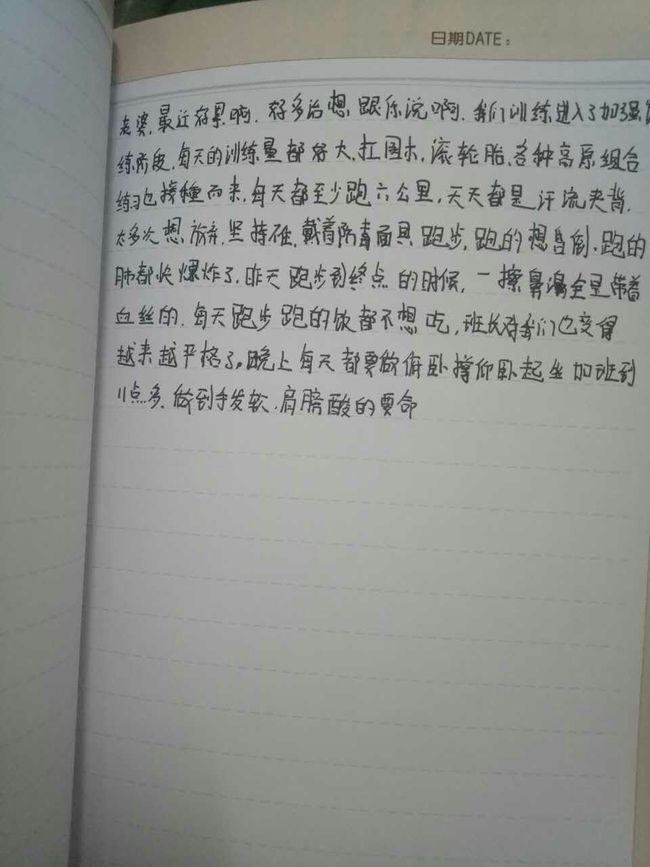 日期DATE：
老婆,最近好累啊.好多话想跟你说啊.我们训练进入了加强训
练阶段,每天的训练量都好大,扛圆木,滚轮胎,各种高原组合
练习也接踵而来,每天都至少跑六公里,天天都是汗流夹背.
太多次想放弃,坚持住,戴着防毒面具跑步,跑的想昏倒.跑的
肺都快爆炸了.昨天跑步到终点的时候,一擦鼻涕全是带着
血丝的.每天跑步跑的饭都不想吃,班长对我们也变得
越来越严格了。晚上每天都要做俯卧撑仰卧起坐加班到
11点多.做到手发软.肩膀酸的要命